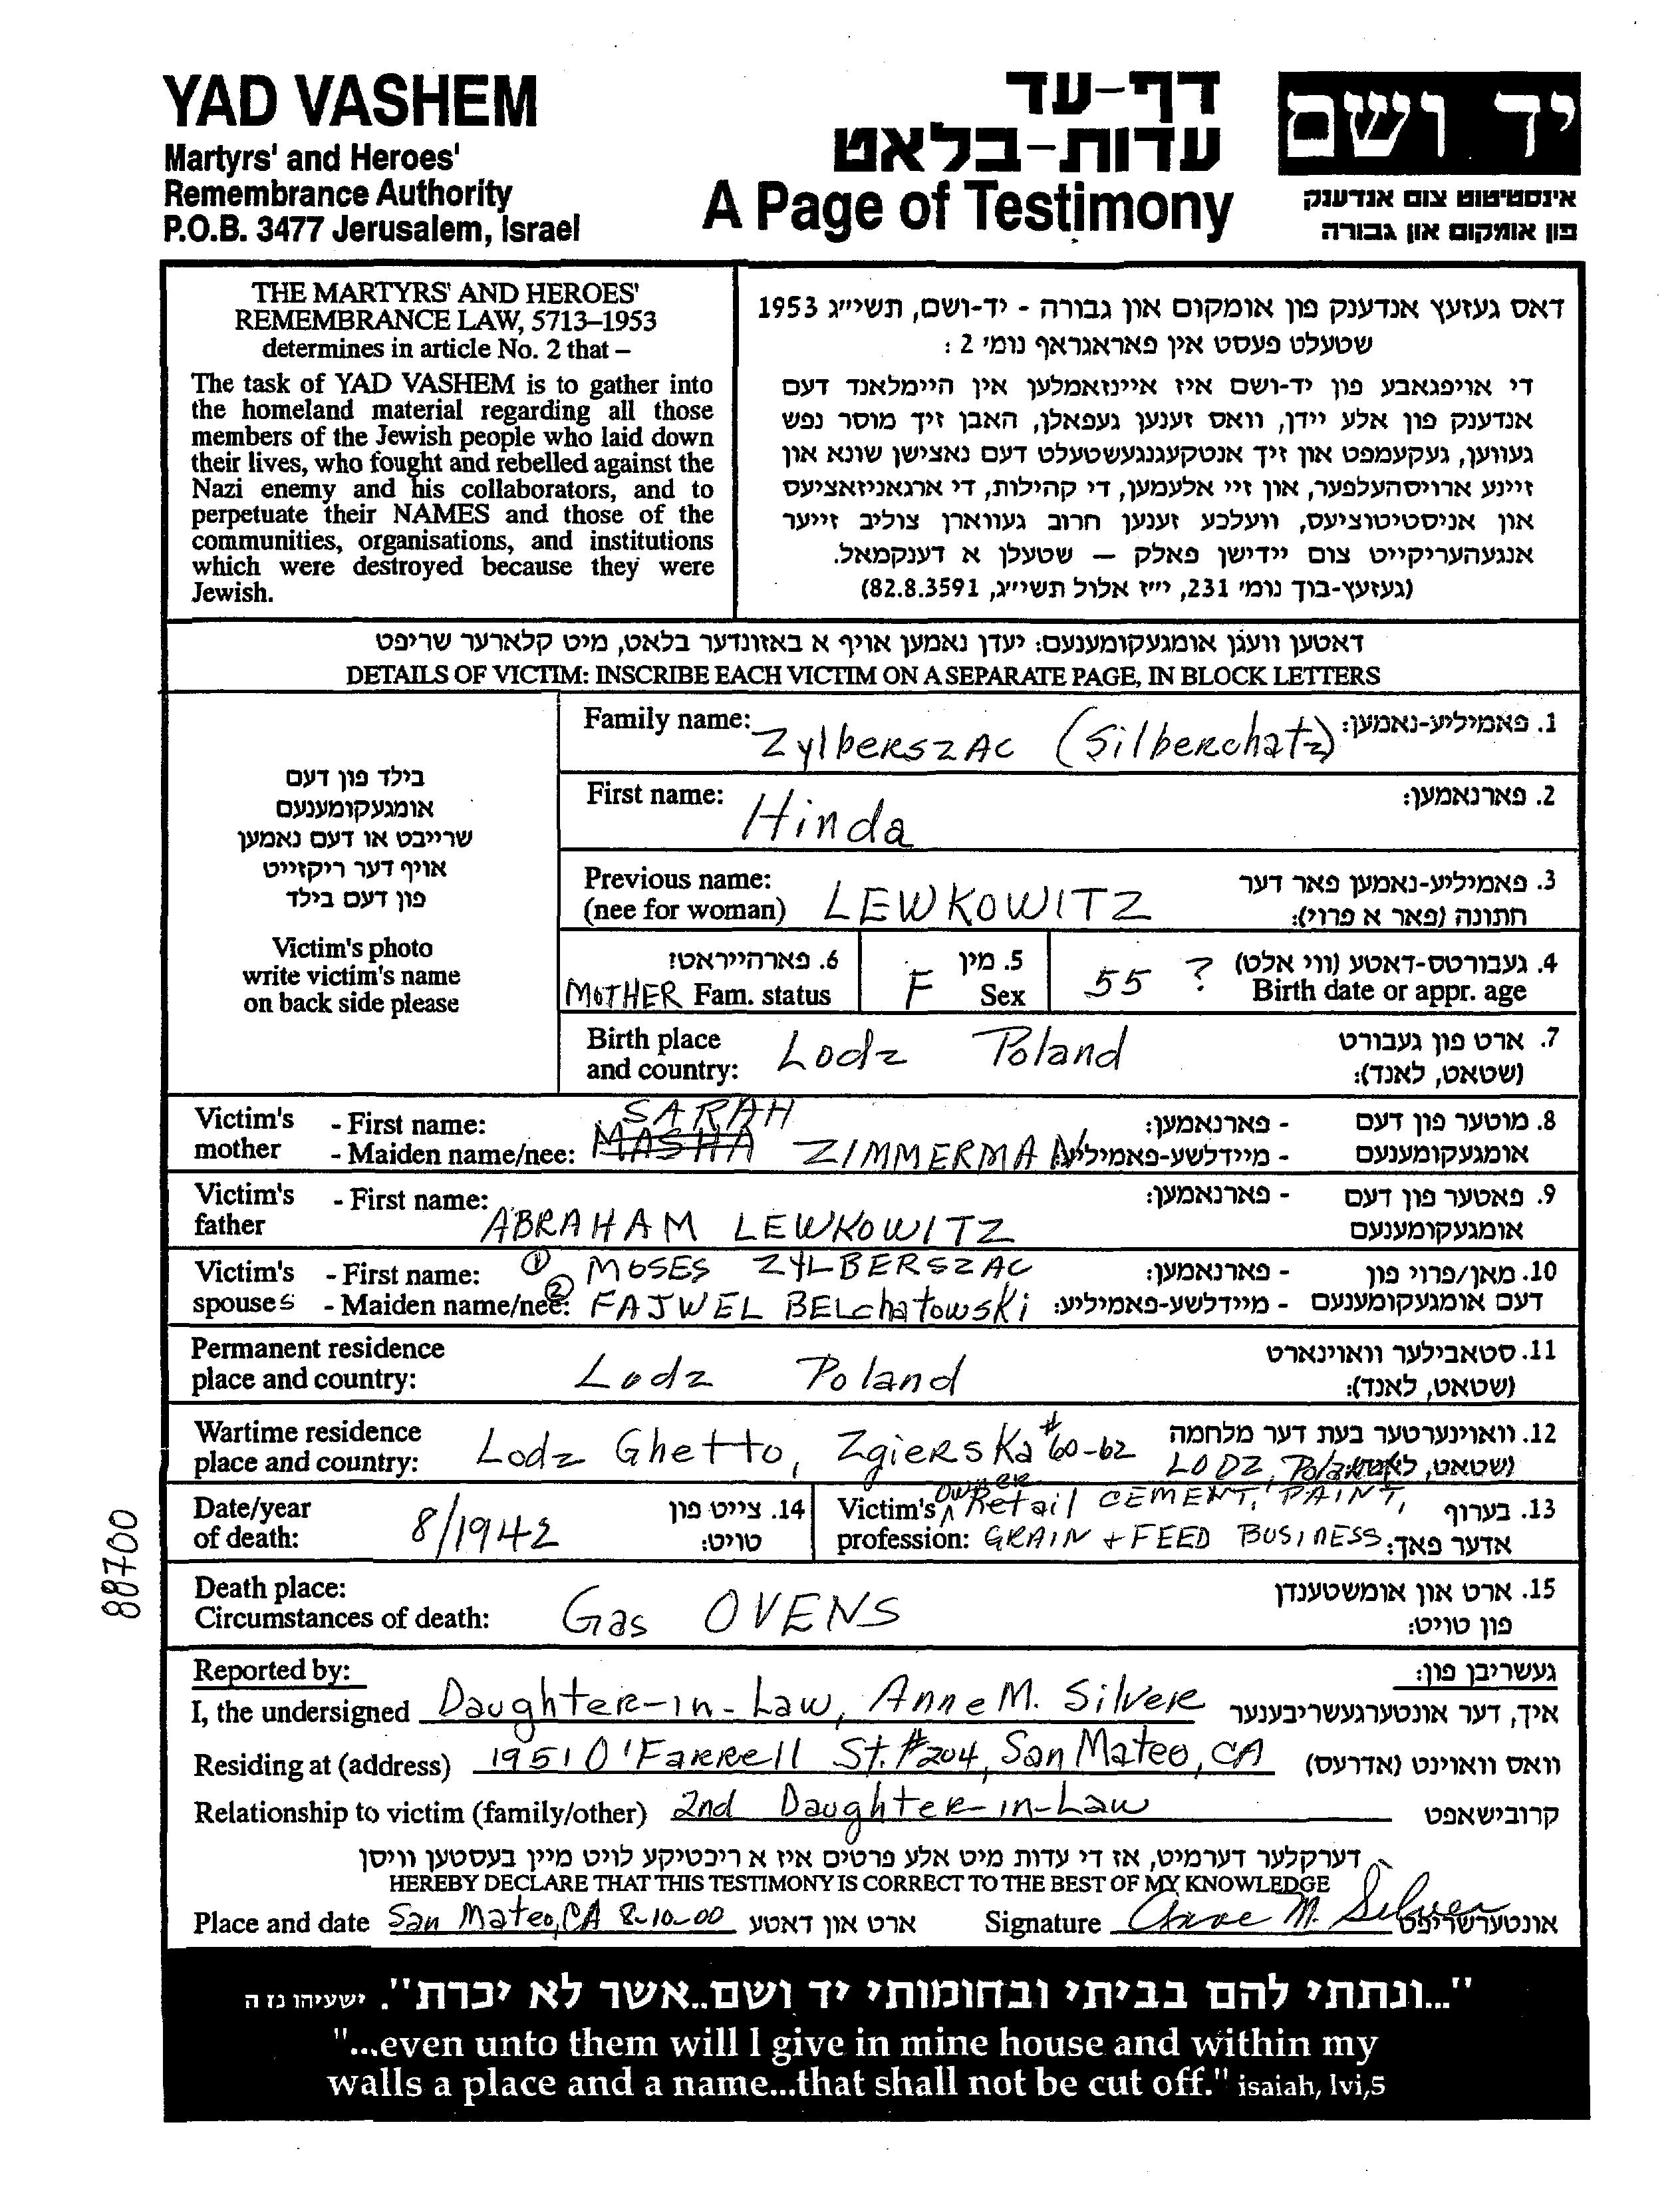 YAD VASHEM
Martyrs' and Heroes'
Remembrance Authority
P.O.B. 3477 Jerusalem, Israel
דף-עד
עדות-בלאט
A Page of Testimony
יד ושם
אינסטיטוט צום אנדענק
פון אומקום און גבורה
THE MARTYRS' AND HEROES'
REMEMBRANCE LAW, 5713–1953
determines in article No. 2 that –
The task of YAD VASHEM is to gather into
the homeland material regarding all those
members of the Jewish people who laid down
their lives, who fought and rebelled against the
Nazi enemy and his collaborators, and to
perpetuate their NAMES and those of the
communities, organisations, and institutions
which were destroyed because they were
Jewish.
דאס געזעץ אנדענק פון אומקום און גבורה - יד-ושם, תשי״ג 1953
שטעלט פעסט אין פאראגראף נומ׳ 2 :
די אויפגאבע פון יד-ושם איז איינזאמלען אין היימלאנד דעם
אנדענק פון אלע יידן, וואס זענען געפאלן, האבן זיך מוסר נפש
געווען, געקעמפט און זיך אנטקעגנגעשטעלט דעם נאצישן שונא און
זיינע ארויסהעלפער, און זיי אלעמען, די קהילות, די ארגאניזאציעס
און אניסטיטוציעס, וועלכע זענען חרוב געווארן צוליב זייער
אנגעהעריקייט צום יידישן פאלק — שטעלן א דענקמאל.
(געזעץ-בוך נומ׳ 231, י״ז אלול תשי״ג, 82.8.3591)
דאטען וועגן אומגעקומענעם: יעדן נאמען אויף א באזונדער בלאט, מיט קלארער שריפט
DETAILS OF VICTIM: INSCRIBE EACH VICTIM ON A SEPARATE PAGE, IN BLOCK LETTERS
בילד פון דעם
אומגעקומענעם
שרייבט או דעם נאמען
אויף דער ריקזייט
פון דעם בילד
Victim's photo
write victim's name
on back side please
Family name: Zylberszac (Silberchatz) 1. פאמיליע-נאמען:
First name: Hinda 2. פארנאמען:
Previous name: 3. פאמיליע-נאמען פאר דער
(nee for woman) LEWKOWITZ חתונה (פאר א פרוי):
6. פארהייראט? 5. מין 4. געבורטס-דאטע (ווי אלט)
MOTHER Fam. status F Sex 55 ? Birth date or appr. age
Birth place 7. ארט פון געבורט
and country: Lodz Poland (שטאט, לאנד):
Victim's - First name: SARAH - פארנאמען: 8. מוטער פון דעם
mother - Maiden name/nee: MASHA ZIMMERMAN - מיידלשע-פאמיליע: אומגעקומענעם
Victim's - First name: - פארנאמען: 9. פאטער פון דעם
father ABRAHAM LEWKOWITZ אומגעקומענעם
Victim's - First name: ① MOSES ZYLBERSZAC - פארנאמען: 10. מאן/פרוי פון
spouses - Maiden name/nee: ② FAJWEL BELchatowski - מיידלשע-פאמיליע: דעם אומגעקומענעם
Permanent residence 11. סטאבילער וואוינארט
place and country: Lodz Poland (שטאט, לאנד):
Wartime residence 12. וואוינערטער בעת דער מלחמה
place and country: Lodz Ghetto, Zgierska #60-62 LODZ, Poland (שטאט, לאנד):
Date/year 14. צייט פון
of death: 8/1942 טויט:
Victim's owner Retail CEMENT, PAINT, 13. בערוף
profession: GRAIN + FEED BUSINESS אדער פאך:
Death place: 15. ארט און אומשטענדן
Circumstances of death: Gas OVENS פון טויט:
Reported by: געשריבן פון:
I, the undersigned Daughter-in-Law, Anne M. Silver איך, דער אונטערגעשריבענער
Residing at (address) 1951 O'Farrell St. #204, San Mateo, CA וואס וואוינט (אדרעס)
Relationship to victim (family/other) 2nd Daughter-in-Law קרובישאפט
דערקלער דערמיט, אז די עדות מיט אלע פרטים איז א ריכטיקע לויט מיין בעסטען וויסן
HEREBY DECLARE THAT THIS TESTIMONY IS CORRECT TO THE BEST OF MY KNOWLEDGE
Place and date San Mateo, CA 8-10-00 ארט און דאטע Signature Anne M. Silver אונטערשריפט
88700
"...ונתתי להם בביתי ובחומותי יד ושם..אשר לא יכרת". ישעיהו נז ה
"...even unto them will I give in mine house and within my
walls a place and a name...that shall not be cut off." isaiah, lvi,5